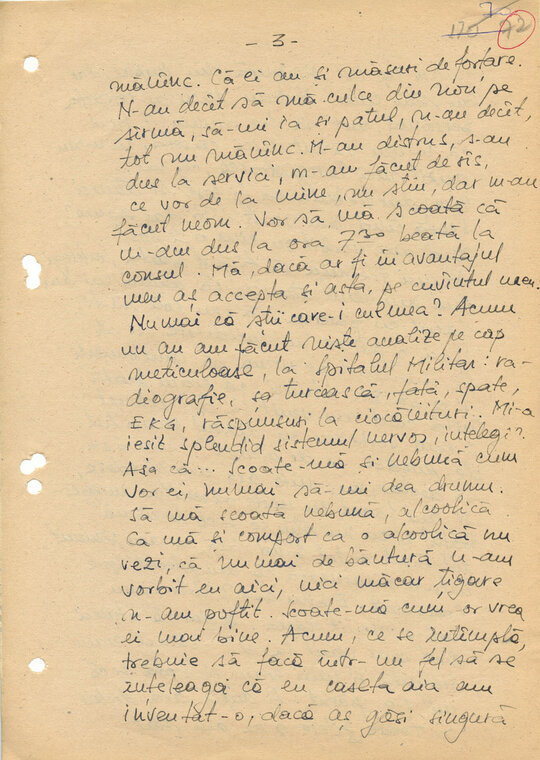 70
170 72
- 3 -
mănînc. Că ei au și măsuri de forțare.
N-au decît să mă culce din nou pe
sîrmă, să-mi ia și patul, n-au decît,
tot nu mănînc. M-au distrus, s-au
dus la servici, m-au făcut de rîs,
ce vor de la mine, nu știu, dar m-au
făcut neom. Vor să mă scoată că
m-am dus la ora 7 30 beată la
consul. Mă, dacă ar fi în avantajul
meu aș accepta și asta, pe cuvîntul meu.
Numai că știi care-i culmea? Acum
un an am făcut niște analize pe cap
meticuloase, la Spitalul Militar: ra-
diografie, șa turcească, față, spate,
EKG, răspunsuri la ciocănituri. Mi-a
ieșit splendid sistemul nervos, înțelegi?
Așa că... Scoate-mă și nebună cum
vor ei, numai să-mi dea drumu.
Să mă scoată nebună, alcoolică
Ca mă și comport ca o alcoolică nu
vezi, că numai de băutură n-am
vorbit eu aici, nici măcar țigare
n-am poftit. Scoate-mă cum or vrea
ei mai bine. Acum, ce se întîmplă,
trebuie să facă într-un fel să se
înțeleagă că eu caseta aia am
inventat-o, dacă aș găsi singură